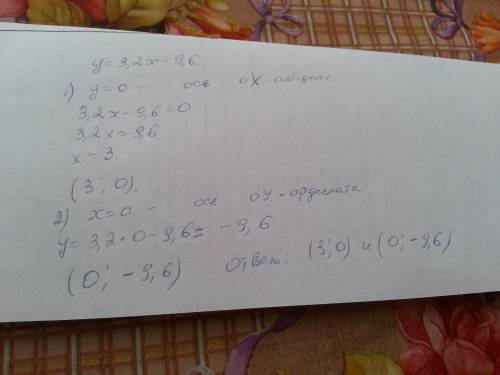 y = 3,2x - 9,6.
1) y = 0 - ось oX - абсцисс.
3,2x - 9,6 = 0.
3,2x = 9,6
x = 3.
(3; 0).
2) x = 0 - ось oy - ордината
y = 3,2 • 0 - 9,6 = - 9,6
(0; - 9,6) Ответ: (3; 0) и (0; - 9,6)